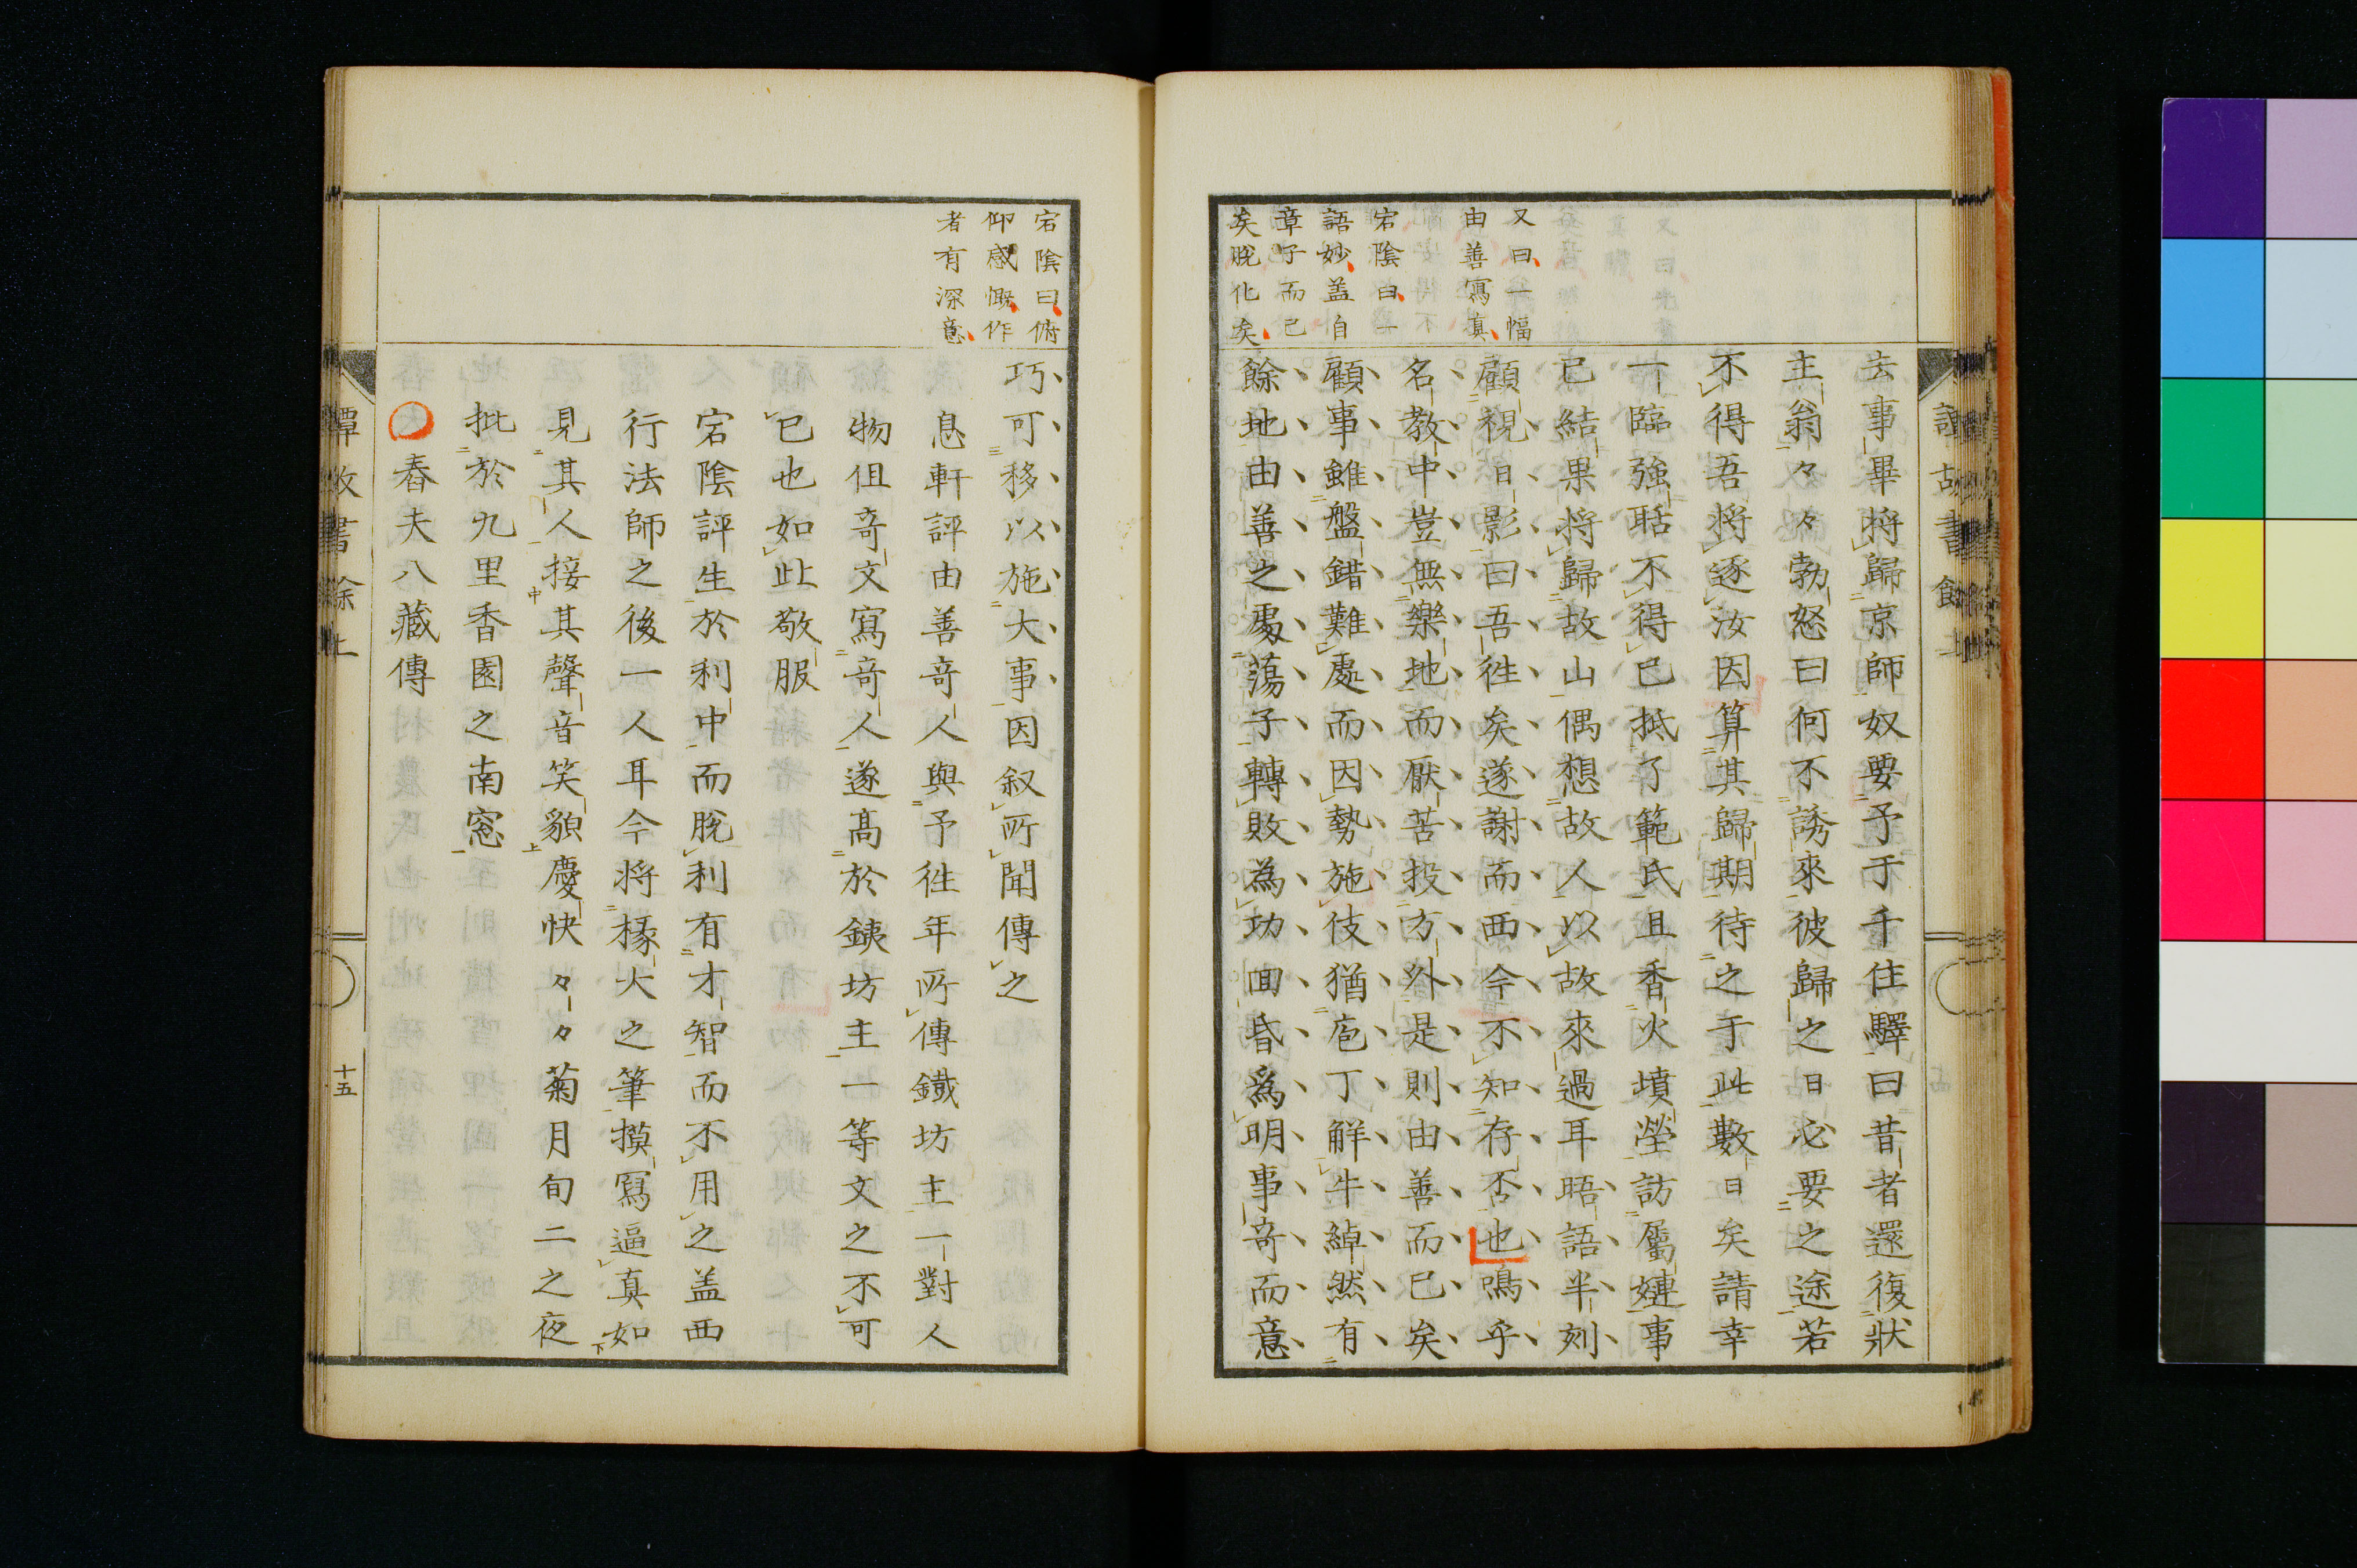 又曰一幅
由善寫真
宕陰曰一
語妙盖自
章子而已
矣脫化矣
去事畢将歸京師奴要予于千住驛曰昔者還復狀
主翁々々勃怒曰何不誘來彼歸之日必要之途若
不得吾将逐汝因算其歸期待之于此數日矣請幸
一臨強聒不得已抵了範氏且香火墳塋訪屬嬗事
已結果将歸故山偶想故人以故來過耳晤語半刻
顧視日影曰吾徃矣遂謝而西今不知存否也鳴乎
名教中豈無樂地而厭苦投方外是則由善而已矣
顧事雖盤錯難處而因勢施伎猶庖丁觧牛綽然有
餘地由善之處蕩子轉敗為功囬昏為明事竒而意
宕陰曰俯
仰感慨作
者有深意
巧可移以施大事因叙所聞傳之
息軒評由善竒人與予徃年所傳鐵坊主一對人
物但竒文寫竒人遂髙於銕坊主一等文之不可
已也如此敬服
宕陰評生於利中而脫利有才智而不用之盖西
行法師之後一人耳今将椽大之筆摸寫逼真如
見其人接其聲音笑貌慶快々々菊月旬二之夜
批於九里香園之南窓
舂夫八藏傳
譚故書餘上
十五